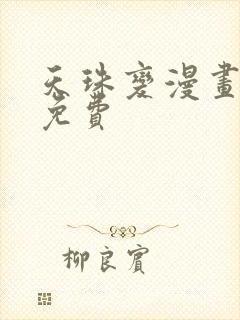 天珠變漫畫
免費
柳良賓